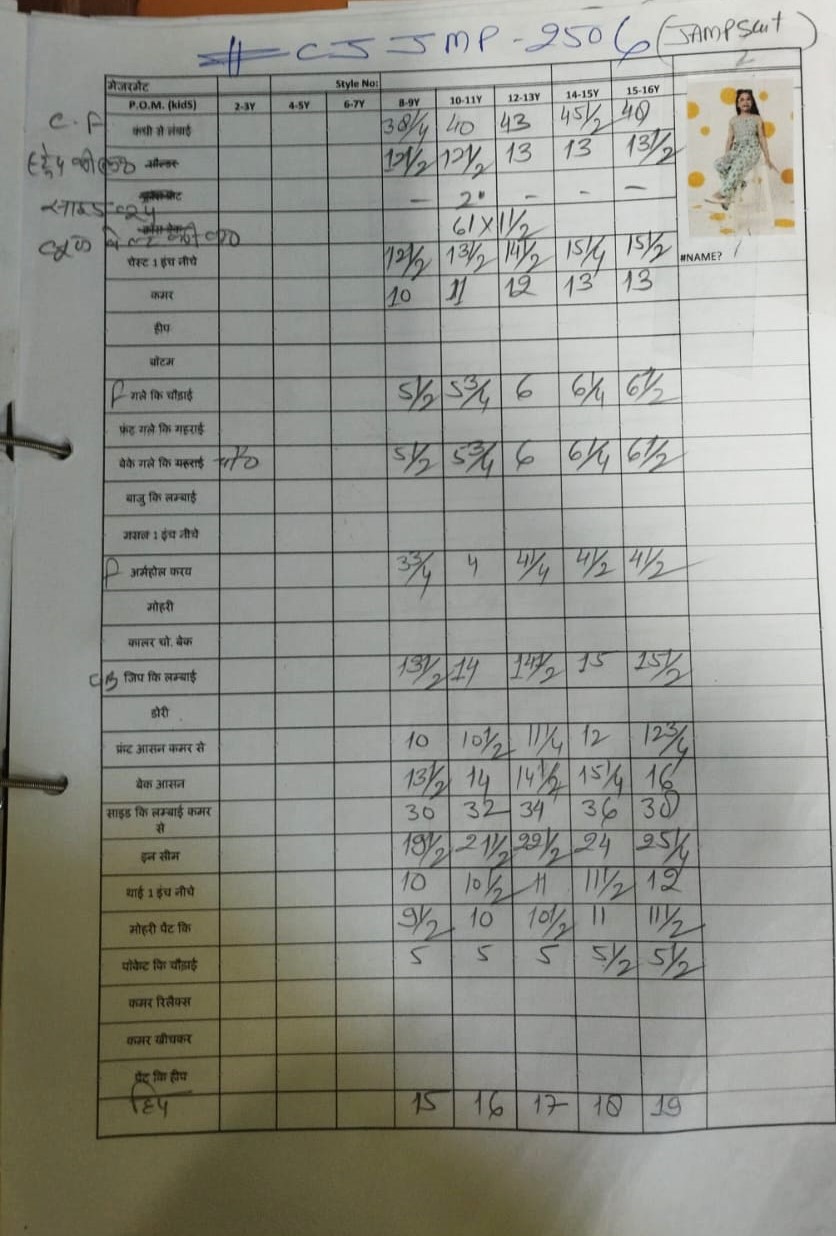 # CJJMP-2506 (JAMPSuit)
2
मेजरमेंट Style No:
P.O.M. (kidS) 2-3Y 4-5Y 6-7Y 8-9Y 10-11Y 12-13Y 14-15Y 15-16Y
C.F कंधी से लंबाई 38 1/4 40 43 45 1/2 48
12 1/2 12 1/2 13 13 13 1/2
साइड - 2" - - -
61 X 1 1/2
चेस्ट 1 इंच नीचे 12 1/2 13 1/2 14 1/2 15 1/4 15 1/2
#NAME?
कमर 10 11 12 13 13
हीप
बॉटम
F गले कि चौड़ाई 5 1/2 5 3/4 6 6 1/4 6 1/2
फ्रंट गले कि गहराई
बेक गले कि गहराई 5 1/2 5 3/4 6 6 1/4 6 1/2
बाजु कि लम्बाई
मसल 1 इंच नीचे
F अर्महोल करव 3 3/4 4 4 1/4 4 1/2 4 1/2
मोहरी
कालर चो. बेक
CB जिप कि लम्बाई 13 1/2 14 14 1/2 15 15 1/2
डोरी
फ्रंट आसन कमर से 10 10 1/2 11 1/4 12 12 3/4
बेक आसन 13 1/2 14 14 1/2 15 1/4 16
साइड कि लम्बाई कमर से 30 32 34 36 38
इन सीम 19 1/2 21 1/2 22 1/2 24 25 1/4
थाई 1 इंच नीचे 10 10 1/2 11 11 1/2 12
मोहरी पैट कि 9 1/2 10 10 1/2 11 11 1/2
पॉकेट कि चौड़ाई 5 5 5 5 1/2 5 1/2
कमर रिलैक्स
कमर खीचकर
पैट कि हीप
हिप 15 16 17 18 19